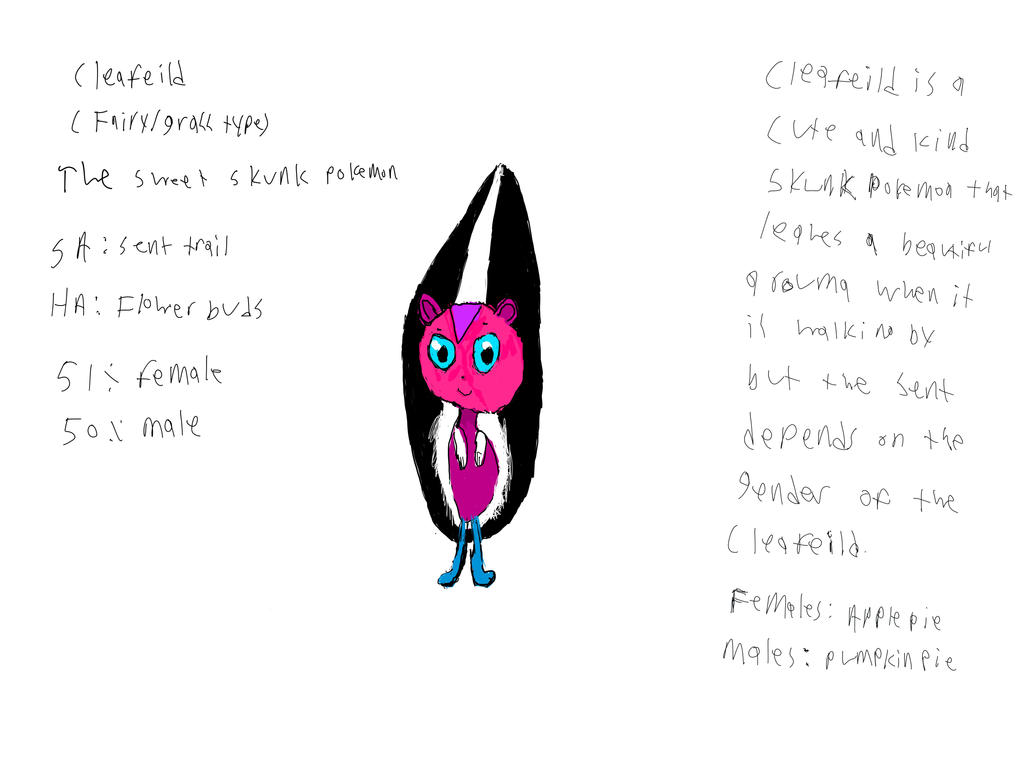 Cleafeild
(Fairy/grass type)
The sweet skunk pokemon
SA: sent trail
HA: Flower buds
51% female
50% male
Cleafeild is a
cute and kind
skunk pokemon that
leaves a beautiful
arouma when it
is walking by
but the sent
depends on the
gender of the
Cleafeild.
Females: Apple pie
Males: pumpkin pie